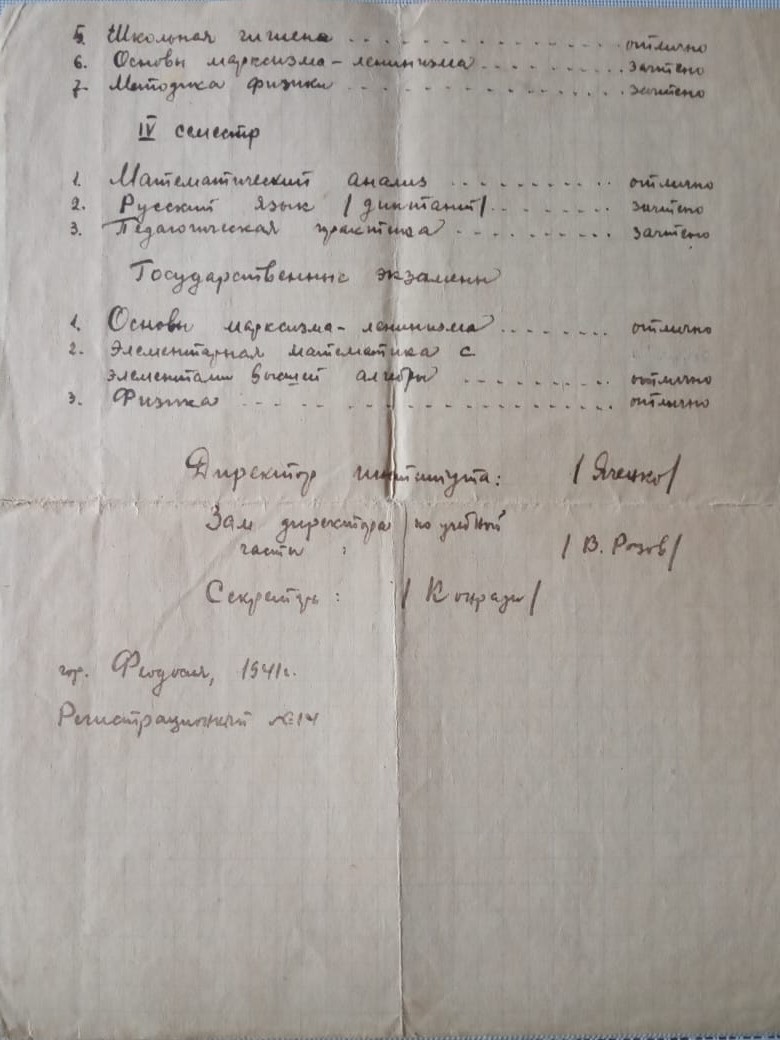 5. Школьная гигиена . . . . . . . . . . . . . . . отлично
6. Основы марксизма-ленинизма . . . . . . . . зачтено
7. Методика физики . . . . . . . . . . . . . . . зачтено
IV семестр
1. Математический анализ . . . . . . . . . . отлично
2. Русский язык /диктант/ . . . . . . . . . зачтено
3. Педагогическая практика . . . . . . . . . зачтено
Государственные экзамены
1. Основы марксизма-ленинизма . . . . . . . отлично
2. Элементарная математика с
элементами высшей алгебры . . . . . . . . . отлично
3. Физика . . . . . . . . . . . . . . . . . . . отлично
Директор института: /Яченко/
Зам директора по учебной
части : /В. Розов/
Секретарь : /Конради/
гор. Феодосия, 1941г.
Регистрационный №14